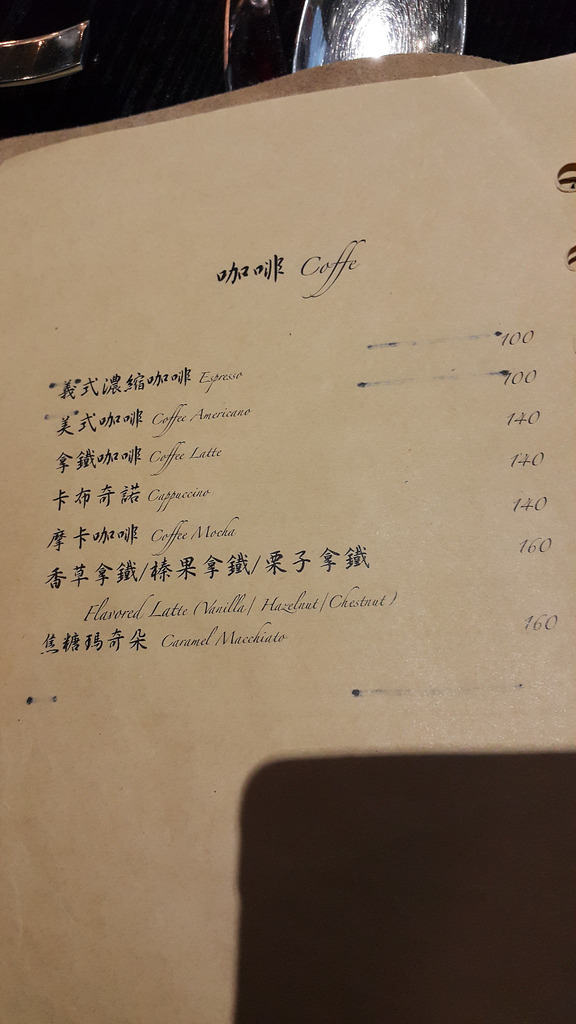 咖啡 Coffe
義式濃縮咖啡 Espresso 100
美式咖啡 Coffee Americano 100
拿鐵咖啡 Coffee Latte 140
卡布奇諾 Cappuccino 140
摩卡咖啡 Coffee Mocha 140
香草拿鐵/榛果拿鐵/栗子拿鐵 160
Flavored Latte (Vanilla/ Hazelnut/Chestnut)
焦糖瑪奇朵 Caramel Macchiato 160